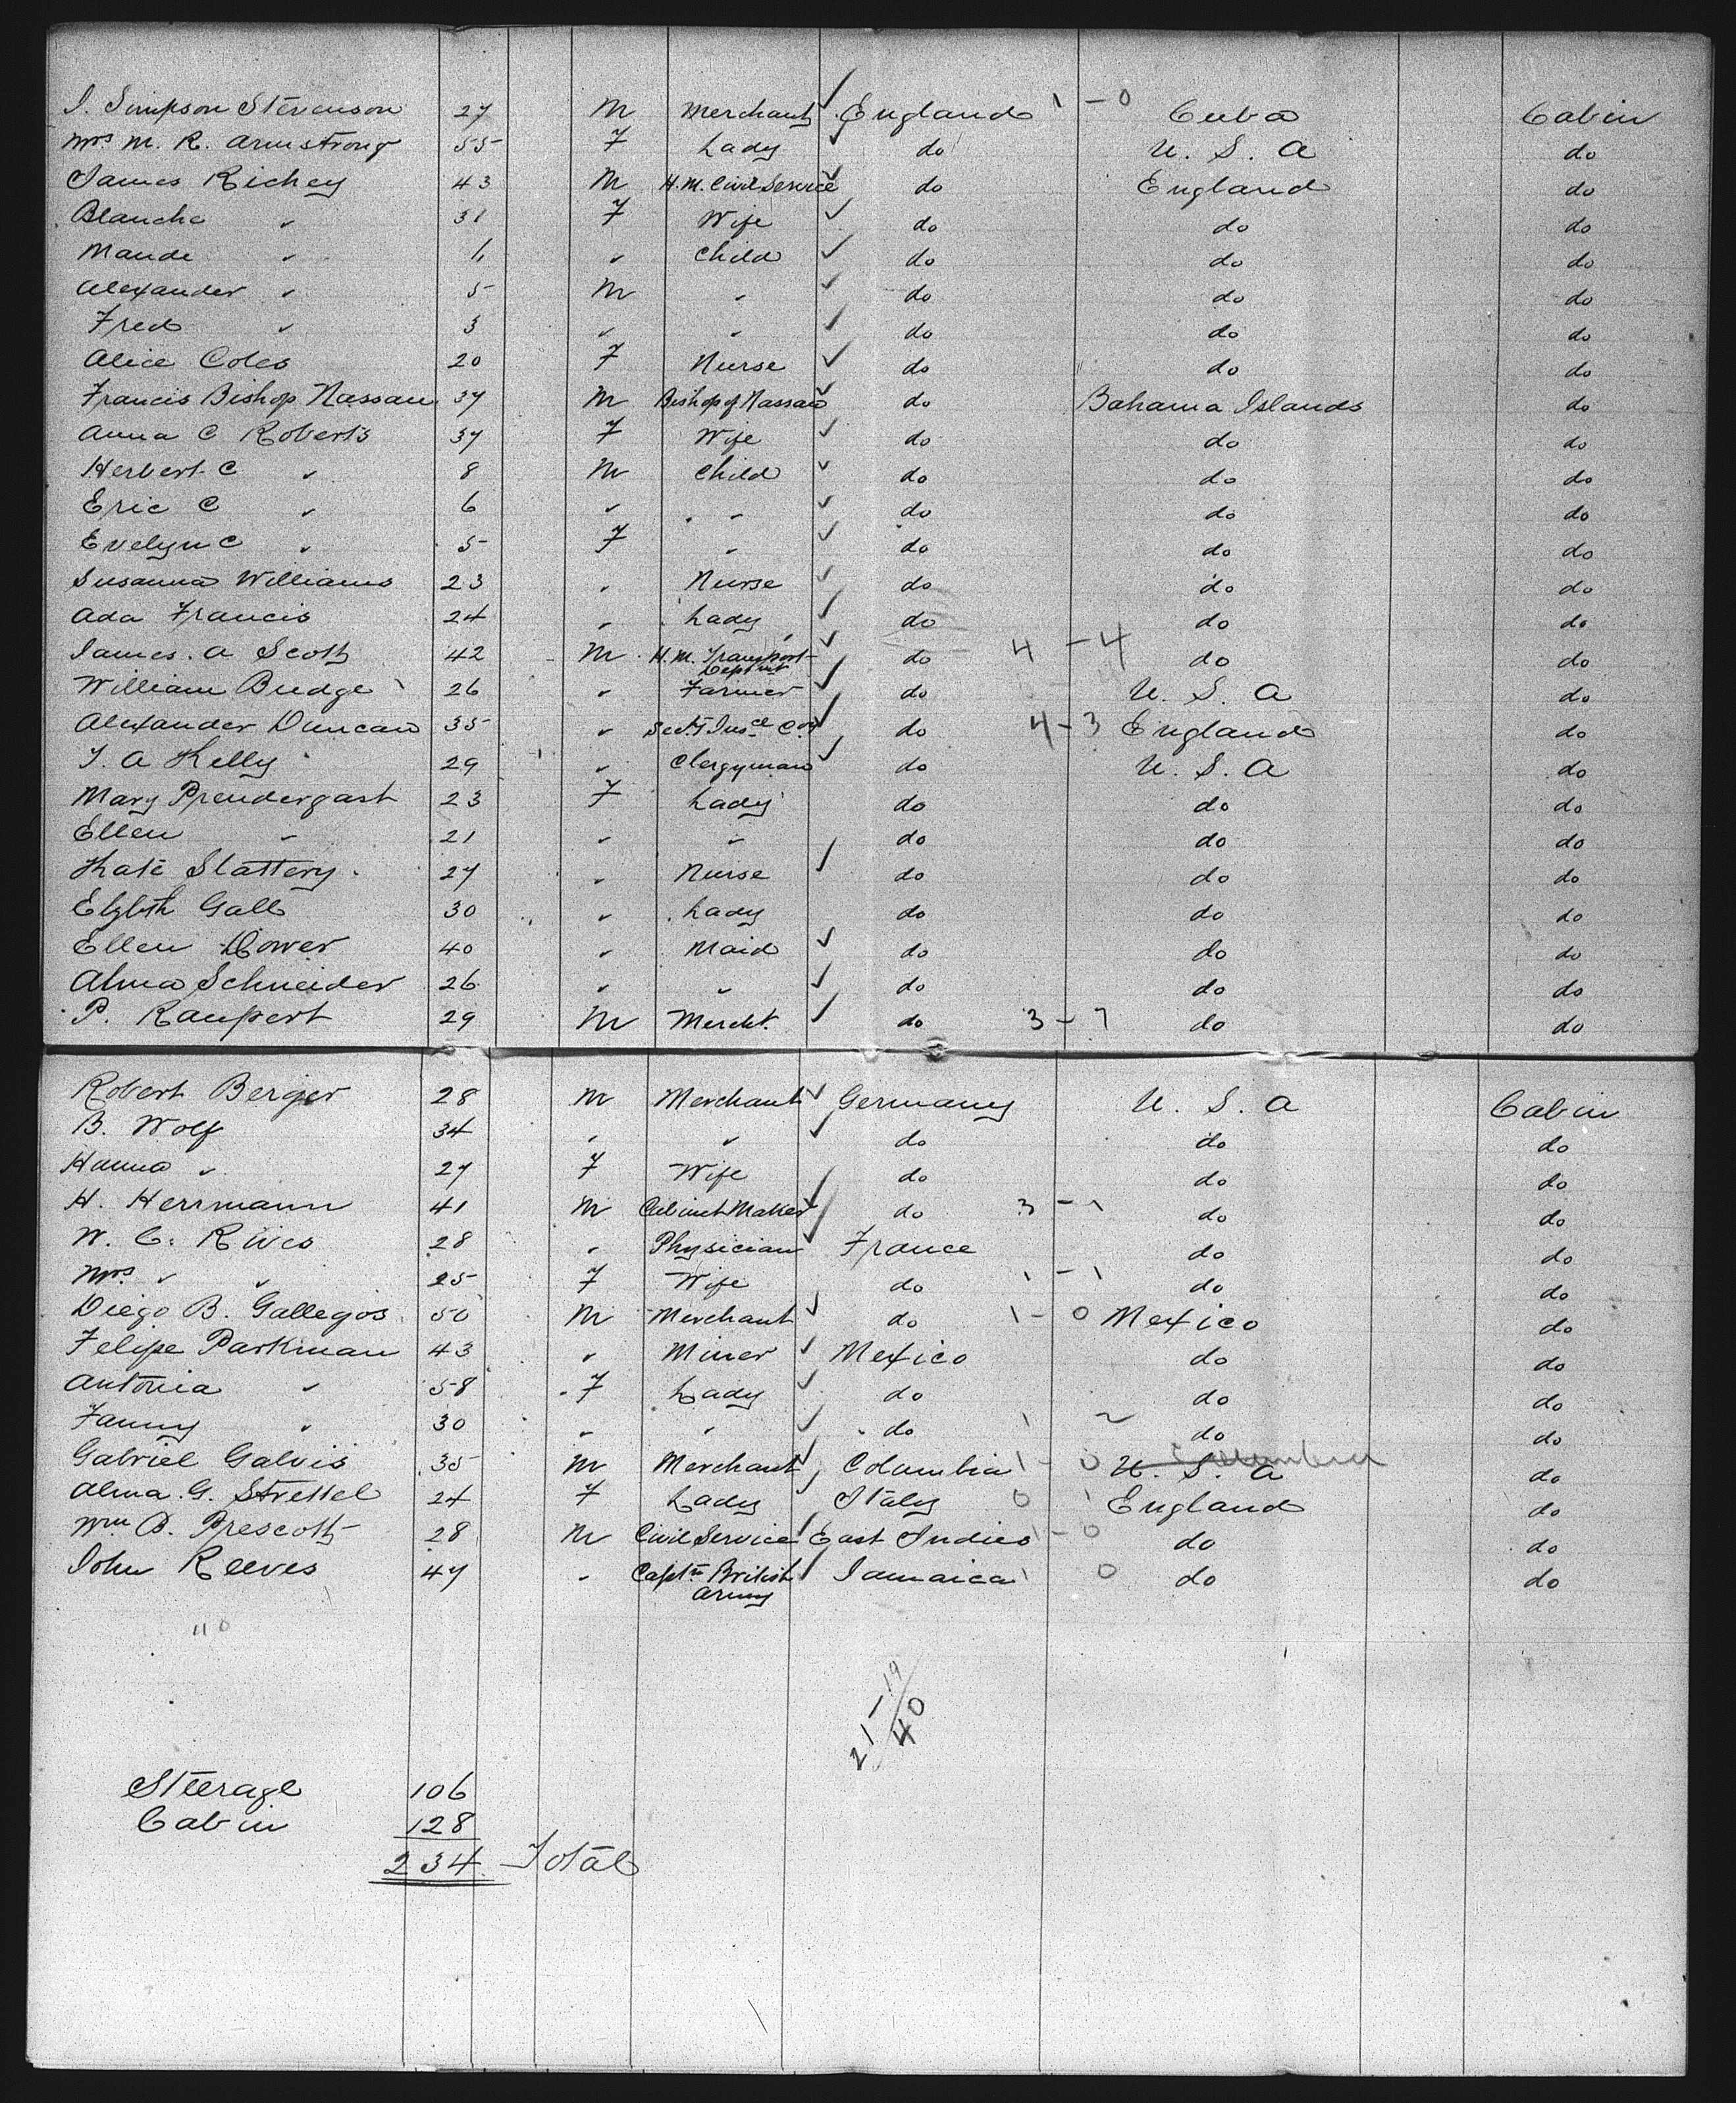 J. Simpson Stevenson 27 M Merchant ✓ England 1 - 0 Cuba Cabin
Mrs M. R. Armstrong 55 F Lady ✓ do U. S. A do
James Richey 43 M H.M. Civil Service ✓ do England do
Blanche " 31 F Wife ✓ do do do
Maude " " Child ✓ do do do
Alexander " 5 M " ✓ do do do
Fred " 3 " " ✓ do do do
Alice Coles 20 F Nurse ✓ do do do
Francis Bishop Nassau 37 M Bishop of Nassau ✓ do Bahama Islands do
Anna C Roberts 37 F Wife ✓ do do do
Herbert C " 8 M Child ✓ do do do
Eric C " 6 " " ✓ do do do
Evelyn C " 5 F " ✓ do do do
Susanna Williams 23 " Nurse ✓ do do do
Ada Francis 24 " Lady ✓ do do do
James. A Scott 42 M H.M. Transport Deptmt ✓ do 4 - 4 do do
William Budge 26 " Farmer ✓ do U. S. A do
Alexander Duncan 35 " Sect Insce Coy ✓ do 4-3 England do
T. A Kelly 29 " Clergyman ✓ do U. S. A do
Mary Prendergast 23 F Lady do do do
Ellen " 21 " " do do do
Kate Slattery 27 " Nurse ✓ do do do
Elzbth Gall 30 " Lady do do do
Ellen Dower 40 " Maid ✓ do do do
Alma Schneider 26 " " ✓ do do do
P. Raupert 29 M Mercht. ✓ do 3-7 do do
Robert Berger 28 M Merchant ✓ Germany U. S. A Cabin
B. Wolf 34 " " ✓ do do do
Hanna " 27 F Wife do do do
H. Herrmann 41 M Cabinet Maker ✓ do 3 - 1 do do
W. C. Rives 28 " Physician ✓ France do do
Mrs " " 25 F Wife do 1 - 1 do do
Diego B. Gallegos 50 M Merchant ✓ do 1 - 0 Mexico do
Felipe Parkman 43 " Miner ✓ Mexico do do
Antonia " 58 F Lady ✓ do do do
Fanny " 30 " " ✓ do 1 2 do do
Gabriel Galvis 35 M Merchant ✓ Columbia 1 - 0 U. S. A Columbia do
Alma. G. Strettel 24 F Lady ✓ Italy 0 1 England do
Wm B. Prescott 28 M Civil Service ✓ East Indies 1 - 0 do do
John Reeves 47 " Captn British Army ✓ Jamaica 1 0 do do
110
21-19
40
Steerage 106
Cabin 128
234 Total